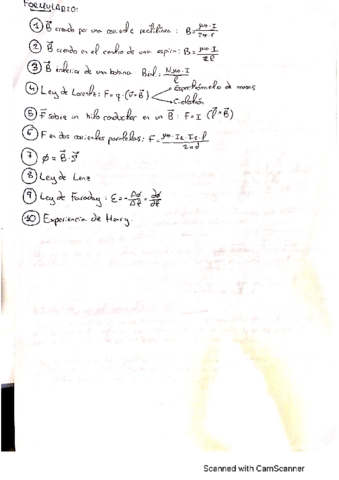 FORMULARIO:
① B⃗ creado por una corriente rectilínea: B = μ₀·I / 2π·r
② B⃗ creado en el centro de una espira: B = μ₀·I / 2R
③ B⃗ interior de una bobina B = N·μ₀·I / ℓ
④ Ley de Lorentz: F = q·(v⃗×B⃗) Espectrómetro de masas
Ciclotrón
⑤ F⃗ sobre un hilo conductor en un B⃗: F = I·(ℓ⃗×B⃗)
⑥ F en dos corrientes paralelas: F = μ₀·I₁·I₂·ℓ / 2πd
⑦ ϕ = B⃗·S⃗
⑧ Ley de Lenz
⑨ Ley de Faraday: ε = -Δϕ/Δt = dϕ/dt
⑩ Experiencia de Henry.
Scanned with CamScanner